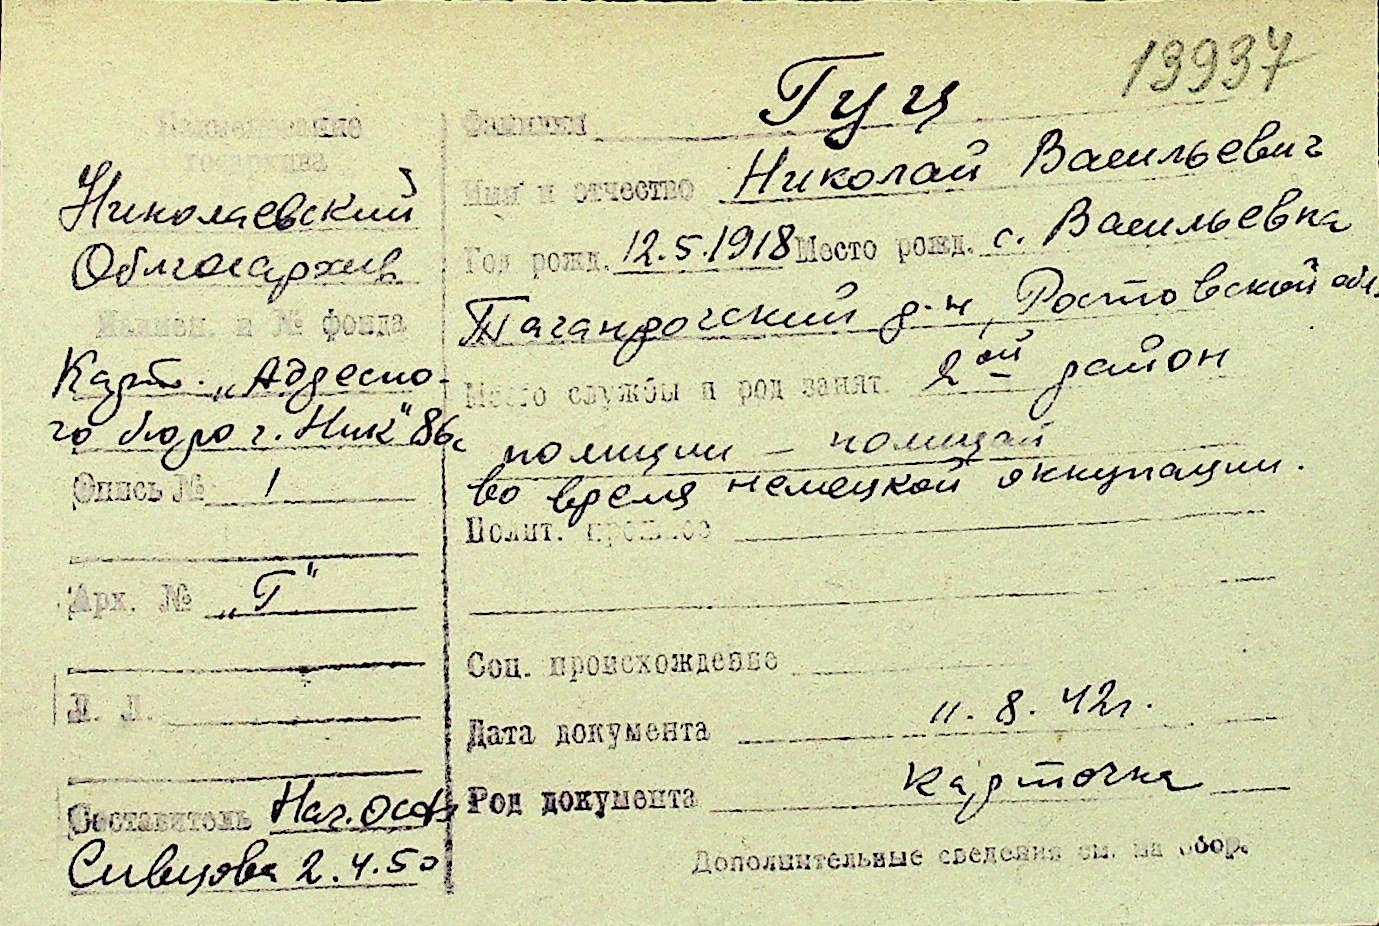 13937
Наименование
госархива
Николаевский
Облгосархив
Наимен. и № фонда
Карт. „Адресно-
го бюро г. Ник" 86с
Опись № 1
Арх. № „Г"
Л. Л.
Составитель Нач. ОСФ
Сивцова 2.4.50
Фамилия Гуц
Имя и отчество Николай Васильевич
Год рожд. 12.5.1918 Место рожд. с. Васильевка
Таганрогский р-н, Ростовской обл.
Место службы и род занят. 2ой район
полиции – полицай
во время немецкой оккупации.
Полит. прошлое
Соц. происхождение
Дата документа 11.8.42г.
Род документа карточка
Дополнительные сведения см. на обор.